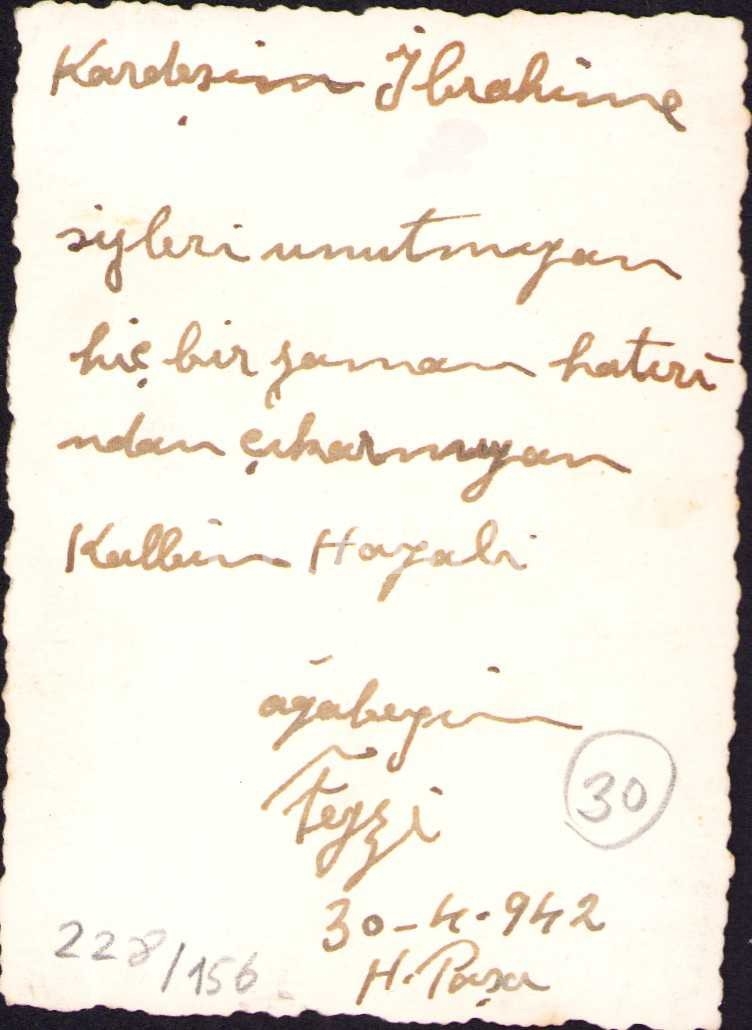 Kardeşim İbrahime
sizleri unutmıyan
hiç bir zaman hatırı
ndan çıkarmıyan
Kalbim Hayali
ağabeyin
Feyzi
30
30-4-942
H. Paşa
228/156